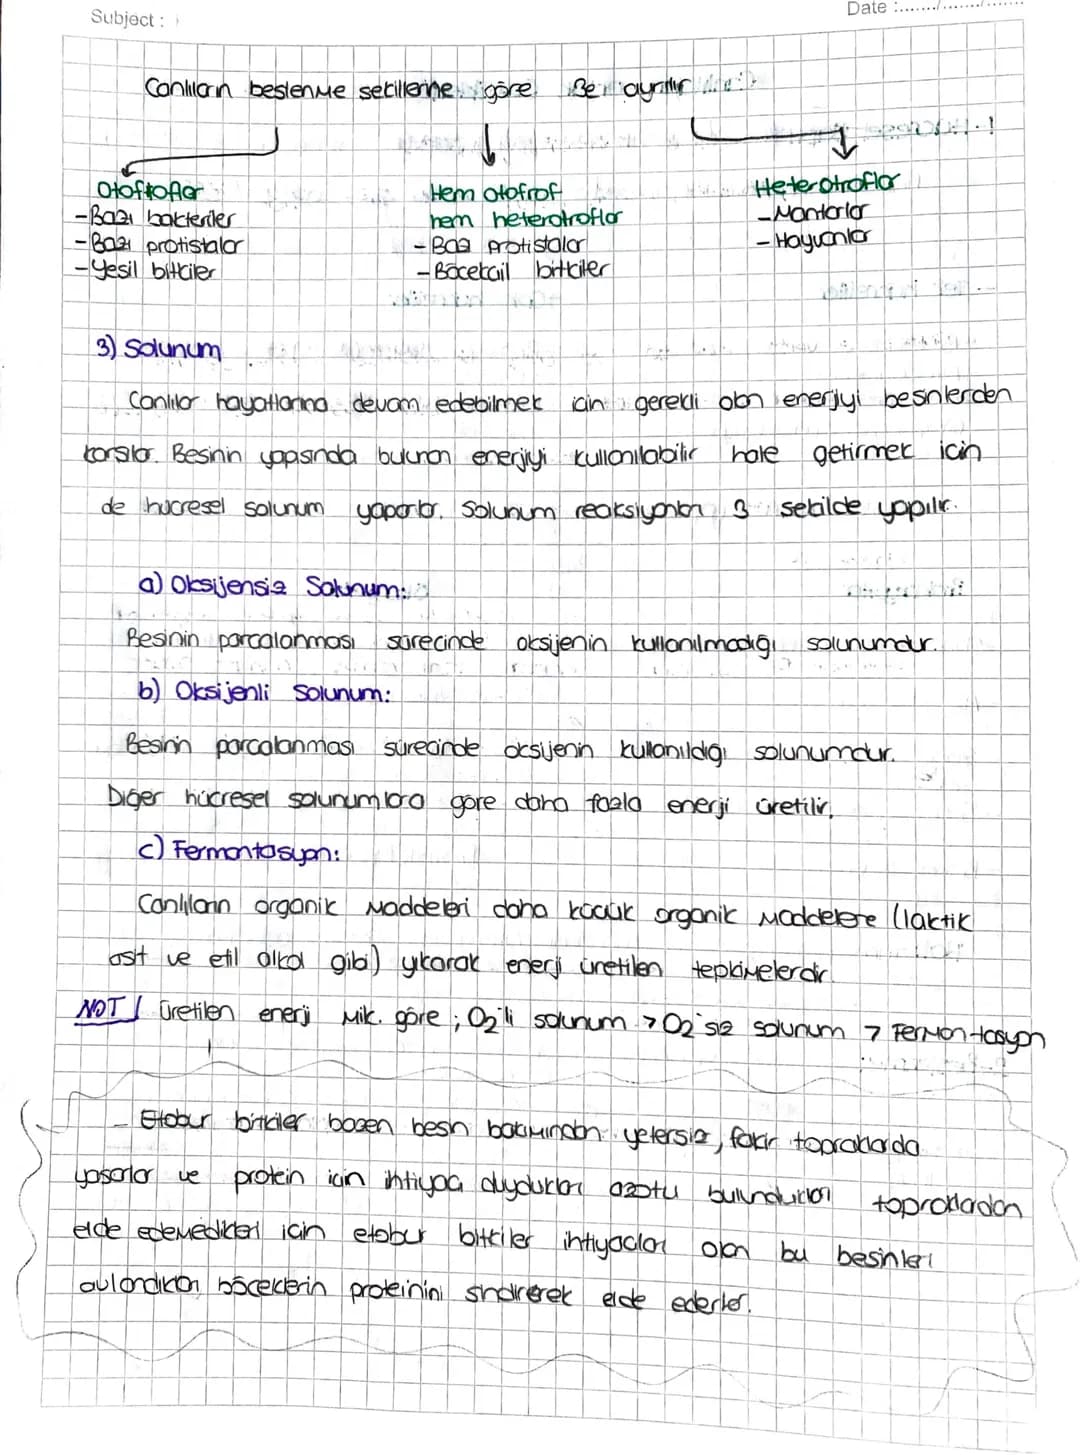 Subject :
Date :......./......./.......
Canlıların beslenme sekillerine göre 3e ayrılır
Ototroflar
-Bazı bakteriler
-Bazı protistalar
-Yesil bitkiler
Hem ototrof
hem heterotroflar
-Bazı protistalar
-Böcekcil bitkiler
Heterotroflar
-Mantarlar
-Hayvanlar
3) Solunum
Canlılar hayatlarına devam edebilmek icin gerekli olan enerjiyi besinlerden
karsılar. Besinin yapısında bulunan enerjiyi kullanılabilir hale getirmek icin
de hücresel solunum yaparlar. Solunum reaksiyonları 3 sekilde yapılır.
a) Oksijensiz Solunum:
Besinin parcalanması sürecinde oksijenin kullanılmadığı solunumdur.
b) Oksijenli Solunum:
Besinin parcalanması sürecinde oksijenin kullanıldığı solunumdur.
Diğer hücresel solunumlara göre daha fazla enerji üretilir.
c) Fermantasyon:
Canlıların organik maddeleri daha kücük organik maddelere (laktik
asit ve etil alkol gibi) yıkarak enerji üretilen tepkimelerdir.
NOT / Üretilen enerji mik. göre ; O2'li solunum > O2'siz solunum > Fermantasyon
- Etobur bitkiler bazen besin bakımından yetersiz, fakir topraklarda
yasarlar ve protein icin ihtiyac duydukları azotu bulundukları topraklardan
elde edemedikleri icin etobur bitkiler ihtiyacları olan bu besinleri
avlandıkları böceklerin proteinini sindirerek elde ederler.